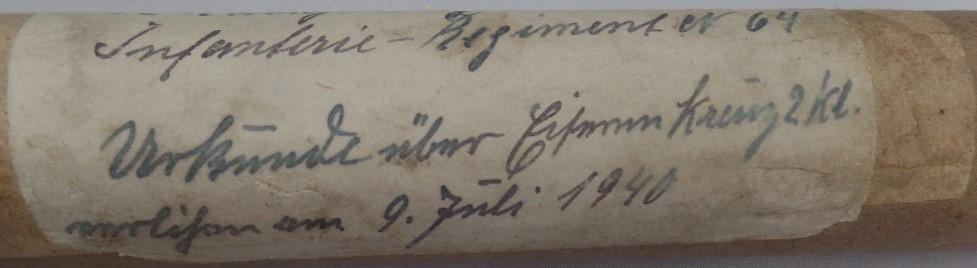 Infanterie-Regiment № 64
Urkunde über Eisernen Kreuz 2 Kl.
verlihen am 9. Juli 1940